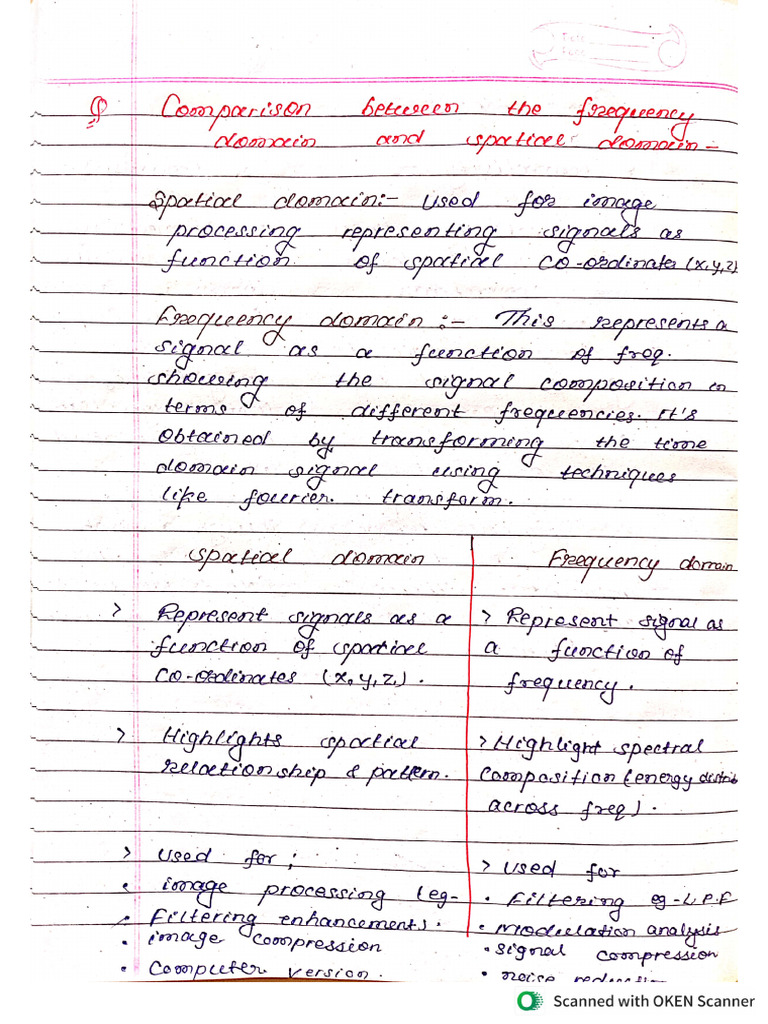 Q Comparison between the frequency
domain and spatial domain -
Spatial domain:- Used for image
processing representing signals as
function of spatial co-ordinates (x,y,z)
Frequency domain :- This represents a
signal as a function of freq.
showing the signal composition in
terms of different frequencies. It's
obtained by transforming the time
domain signal using techniques
like fourier. transform.
Spatial domain Frequency domain
> Represent signals as a > Represent signal as
function of spatial a function of
co-ordinates (x,y,z,). frequency.
> Highlights spatial > Highlight spectral
relationship & pattern. composition (energy distrib
across freq).
> Used for; > Used for
• image processing (eg- • Filtering eg-L.P.F
• Filtering enhancements). • Modulation analysis
• image compression • signal compression
• Computer version. • noise reduction
Scanned with OKEN Scanner